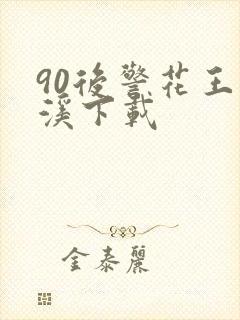 90後警花王
溪下載
金泰麗